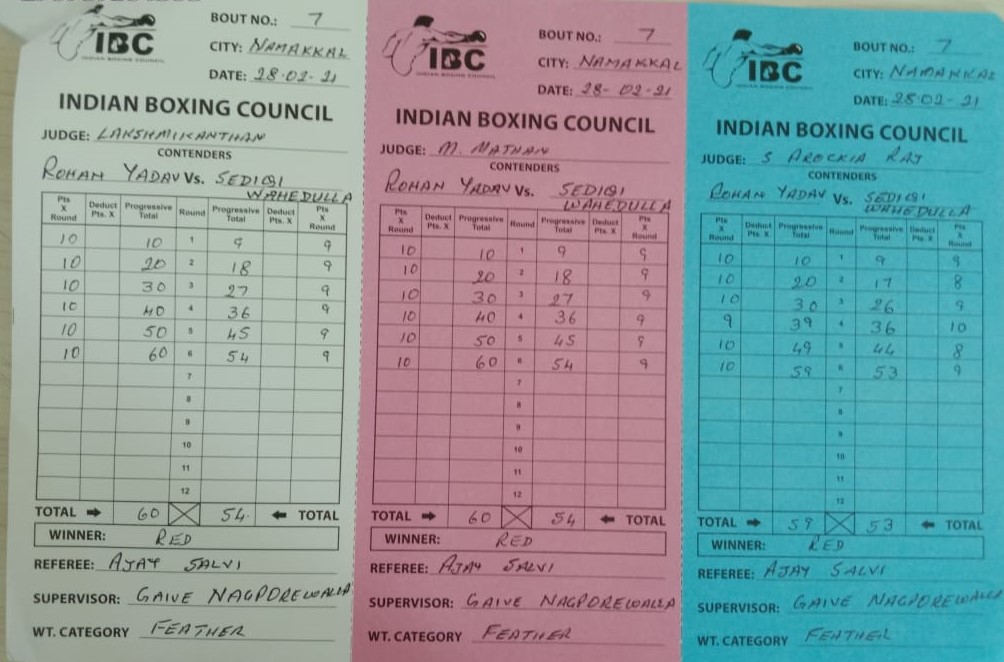 IBC
INDIAN BOXING COUNCIL
BOUT NO.: 7
CITY: NAMAKKAL
DATE: 28-02-21
INDIAN BOXING COUNCIL
JUDGE: LAKSHMIKANTHAN
CONTENDERS
ROHAN YADAV Vs. SEDIQI
WAHEDULLA
Pts X Round Deduct Pts. X Progressive Total Round Progressive Total Deduct Pts. X Pts X Round
10 10 1 9 9
10 20 2 18 9
10 30 3 27 9
10 40 4 36 9
10 50 5 45 9
10 60 6 54 9
7
8
9
10
11
12
TOTAL 60 54 TOTAL
WINNER: RED
REFEREE: AJAY SALVI
SUPERVISOR: GAIVE NAGPOREWALLA
WT. CATEGORY FEATHER
IBC
INDIAN BOXING COUNCIL
BOUT NO.: 7
CITY: NAMAKKAL
DATE: 28-02-21
INDIAN BOXING COUNCIL
JUDGE: M. MATHAN
CONTENDERS
ROHAN YADAV Vs. SEDIQI
WAHEDULLA
Pts X Round Deduct Pts. X Progressive Total Round Progressive Total Deduct Pts. X Pts X Round
10 10 1 9 9
10 20 2 18 9
10 30 3 27 9
10 40 4 36 9
10 50 5 45 9
10 60 6 54 9
7
8
9
10
11
12
TOTAL 60 54 TOTAL
WINNER: RED
REFEREE: AJAY SALVI
SUPERVISOR: GAIVE NAGPOREWALLA
WT. CATEGORY FEATHER
IBC
INDIAN BOXING COUNCIL
BOUT NO.: 7
CITY: NAMAKKAL
DATE: 28-02-21
INDIAN BOXING COUNCIL
JUDGE: S AROCKIA RAJ
CONTENDERS
ROHAN YADAV Vs. SEDIQI
WAHEDULLA
Pts X Round Deduct Pts. X Progressive Total Round Progressive Total Deduct Pts. X Pts X Round
10 10 1 9 9
10 20 2 17 8
10 30 3 26 9
9 39 4 36 10
10 49 5 44 8
10 59 6 53 9
7
8
9
10
11
12
TOTAL 59 53 TOTAL
WINNER: RED
REFEREE: AJAY SALVI
SUPERVISOR: GAIVE NAGPOREWALLA
WT. CATEGORY FEATHER